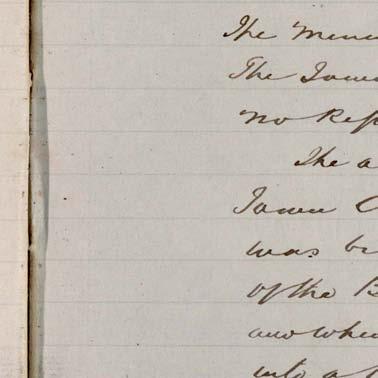 The Minu
The Town
No Rep
The a
Town C
was br
of the B
and whe
into a